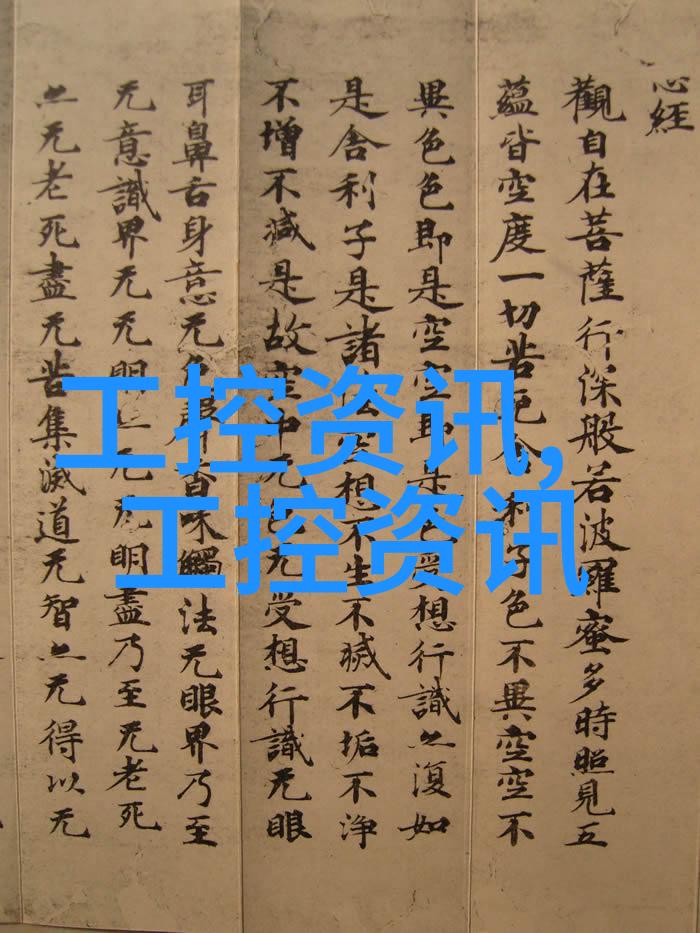 心經
觀自在菩薩行深般若波羅蜜多時照見五
蘊皆空度一切苦厄舍利子色不異空空不
異色色即是空空即是色受想行識亦復如
是舍利子是諸法空想不生不滅不垢不淨
不增不減是故空中无色无受想行識无眼
耳鼻舌身意无色聲香味觸法无眼界乃至
无意識界无无明亦无无明盡乃至无老死
亦无老死盡无苦集滅道无智亦无得以无
工控资讯,
工控资讯